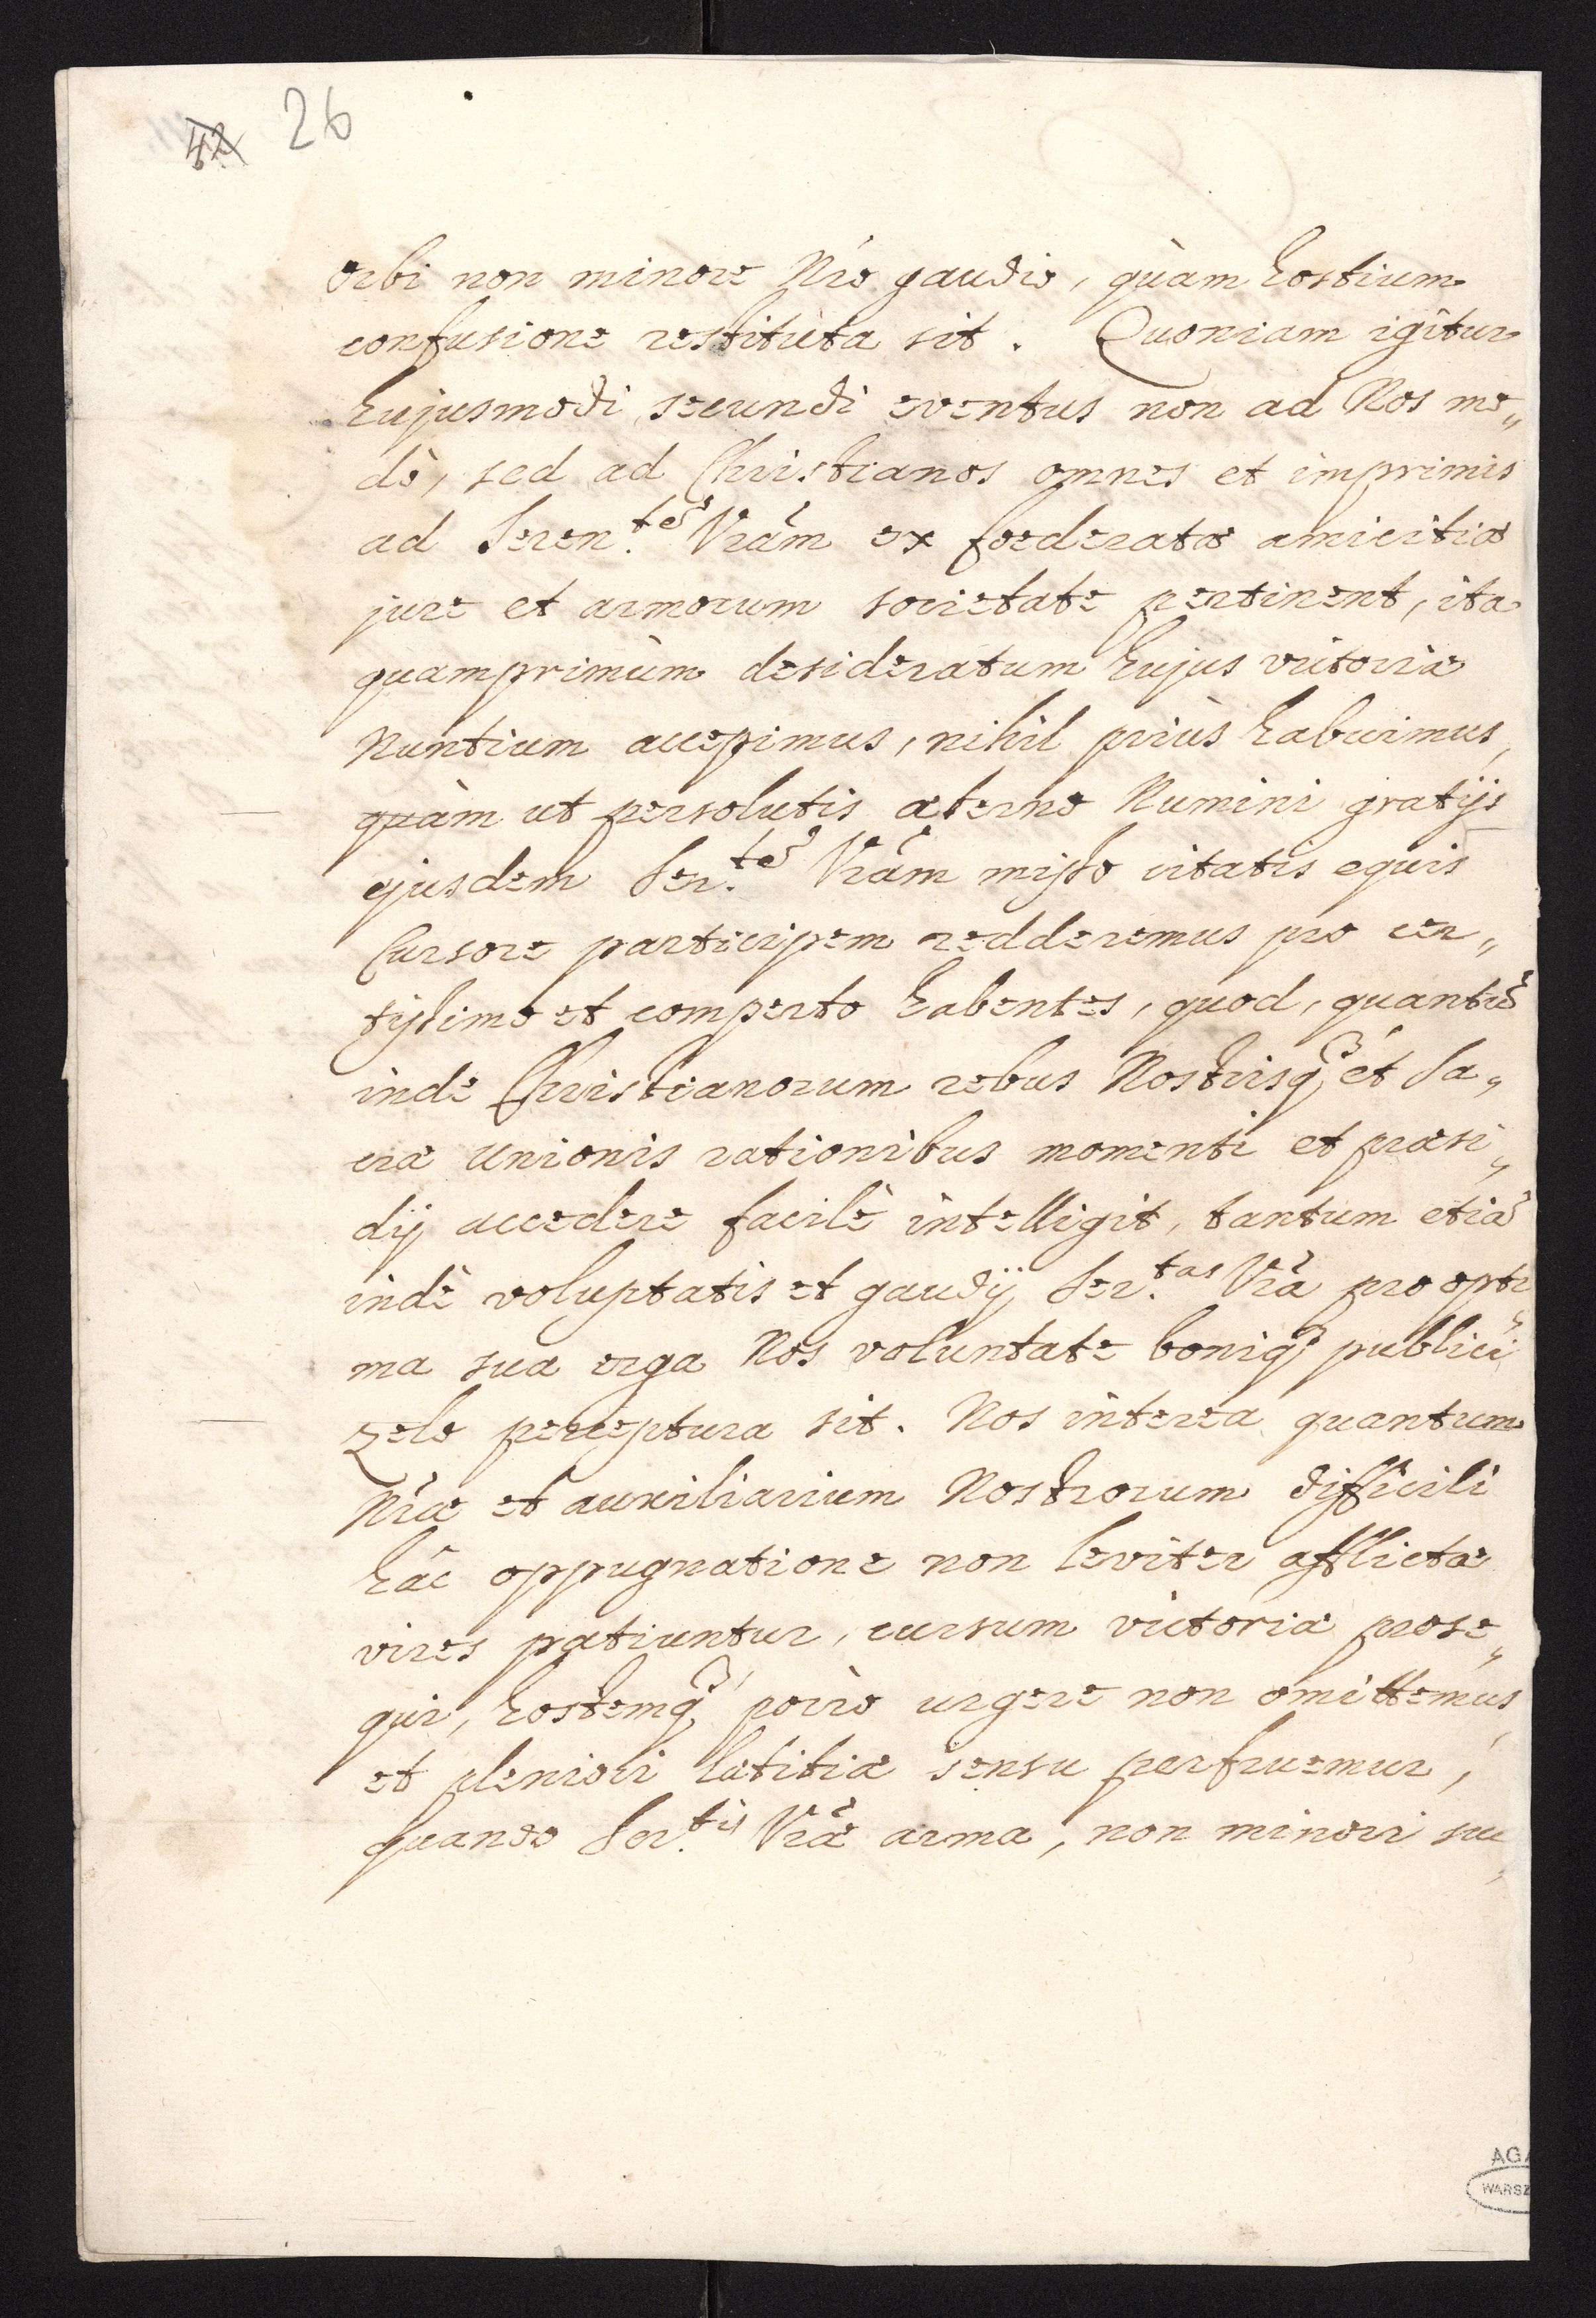 42 26
orbi non minore Nr̃o gaudio, quàm hostium
confusione restituta sit. Quoniam igitur
hujusmodi secundi eventus non ad Nos mo„
dò, sed ad Christianos omnes et imprimis
ad Seren.tẽ Vr̃am ex foederatæ amicitiæ
jure et armorum societate pertinent, ita
quamprimùm desideratum hujus victoriæ
Nuntium accepimus, nihil priùs habuimus,
quàm ut persolutis æterno Numini gratijs
ejusdem Ser.tẽ Vr̃am misso citatis equis
Cursore participem redderemus pro cer„
tissimo et comperto habentes, quod, quantũ
inde Christianorum rebus Nostrisq₃ et Sa„
cræ Unionis rationibus momenti et præsi„
dij accedere facilè intelligit, tantum etiã
indè voluptatis et gaudij Ser.tas Vr̃a pro opti„
ma sua erga Nos voluntate boniq₃ publici
zelo perceptura sit. Nos interea quantum
Nr̃æ et auxiliarium Nostrorum difficili
hâc oppugnatione non leviter afflictæ
vires patiuntur, cursum victoriæ prose„
qui, hostemq₃ porrò urgere non omittemus,
et pleniori lætitiæ sensu perfruemur,
quando Ser.tis Vr̃æ arma, non minori suc„
AGA
WARSZ